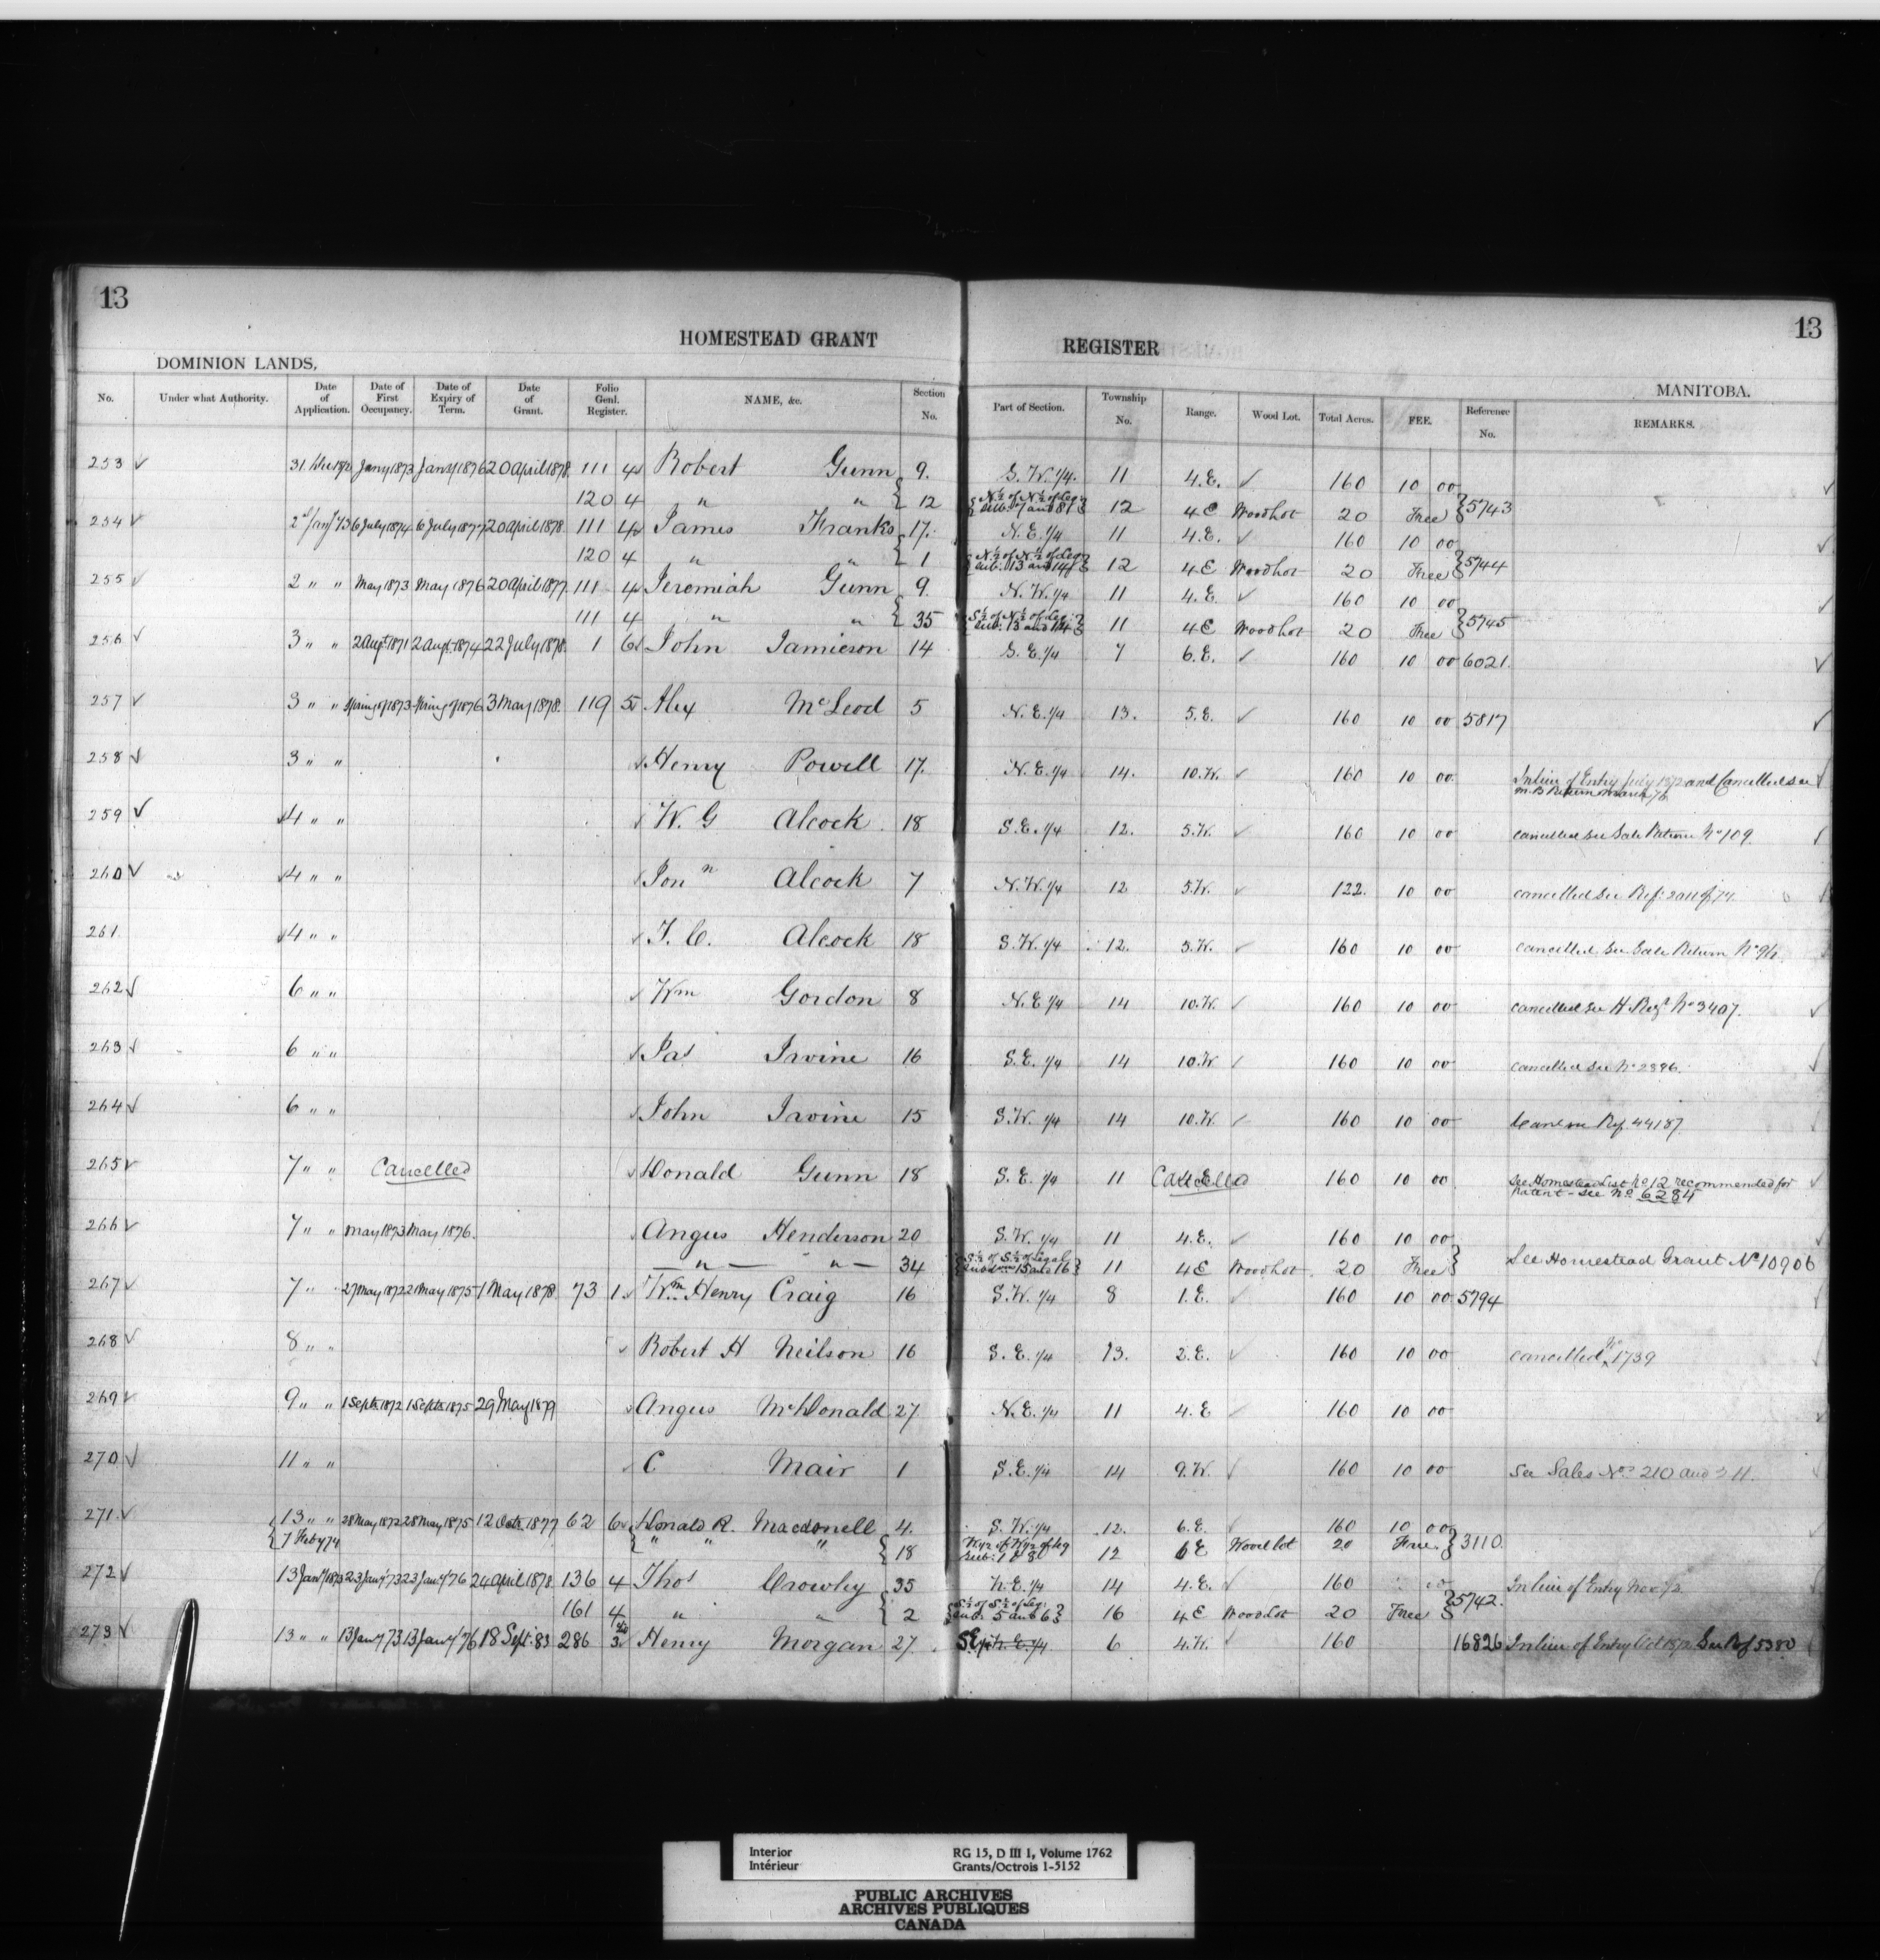 13
13
HOMESTEAD GRANT REGISTER
DOMINION LANDS,
MANITOBA.
No. Under what Authority. Date of Application. Date of First Occupancy. Date of Expiry of Term. Date of Grant. Folio Genl. Register. NAME, &c. Section No. Part of Section. Township No. Range. Wood Lot. Total Acres. FEE. Reference No. REMARKS.
253 31 Dec 1872 Jany 1873 Jany 1876 20 April 1878 111 4 Robert Gunn 9. S.W. 1/4. 11 4.E. 160 10 00
120 4 " " 12 N½ of N½ of Leg: Sub: 7 and 8 12 4 E Wood Lot 20 Free 5743
254 2d Jany 73 6 July 1874 6 July 1877 20 April 1878 111 4 James Franks 17. N.E. 1/4 11 4.E. 160 10 00
120 4 " " 1 N½ of N½ of Leg: Sub: 13 and 14 12 4 E Wood Lot 20 Free 5744
255 2 " " May 1873 May 1876 20 April 1877 111 4 Jeremiah Gunn 9. N.W. 1/4 11 4.E. 160 10 00
111 4 " " 35 S½ of N½ of Leg: Sub: 13 and 14 11 4 E Wood Lot 20 Free 5745
256 3 " " 2 Augt. 1871 2 Augt. 1874 22 July 1878 1 6 John Jamieson 14 S.E. 1/4 7 6.E. 160 10 00 6021.
257 3 " " Spring of 1873 Spring of 1876 3 May 1878 119 5 Alex McLeod 5 N.E. 1/4 13. 5.E. 160 10 00 5817
258 3 " " Henry Powell 17. N.E. 1/4 14. 10.W. 160 10 00 In lieu of Entry July 1872 and Cancelled see
M.B Return March 76
259 4 " " W. G Alcock 18 S.E. 1/4 12. 5.W. 160 10 00 cancelled see Sale Return No 109.
260 4 " " Jon n Alcock 7 N.W. 1/4 12 5.W. 122. 10 00 cancelled see Ref:
261. 4 " " T. C. Alcock 18 S.W. 1/4 12. 5.W. 160 10 00 cancelled see Sale Return No
262 6 " " Wm Gordon 8 N.E 1/4 14 10.W. 160 10 00 cancelled see H. Regr No 3407.
263 6 " " Jas Irvine 16 S.E. 1/4 14 10.W 160 10 00 cancelled see No 2896.
264 6 " " John Irvine 15 S.W. 1/4 14 10.W. 160 10 00 Ref 44187
265 7 " " Cancelled Donald Gunn 18 S.E. 1/4 11 Cancelled 160 10 00 See Homestead List No 12 recommended for
Patent - see No 6284
266 7 " " May 1873 May 1876. Angus Henderson 20 S.W. 1/4 11 4.E. 160 10 00
" " 34 S½ of S½ of Legal Subd 15 and 16 11 4 E Wood Lot 20 Free See Homestead Grant No 10906
267 7 " " 27 May 1872 27 May 1875 1 May 1878 73 1 Wm Henry Craig 16 S.W. 1/4 8 1.E. 160 10 00 5794
268 8 " " Robert H Neilson 16 S.E. 1/4 13. 2.E. 160 10 00 cancelled No 1739
269 9 " " 1 Septr 1872 1 Septr 1875 29 May 1879 Angus McDonald 27. N.E. 1/4 11 4.E 160 10 00
270 11 " " C Mair 1 S.E. 1/4 14 9.W. 160 10 00 See Sales Nos 210 and 211.
271. 13 " " 28 May 1872 28 May 1875 12 Octr. 1877 62 6 Donald R. Macdonell 4. S.W. 1/4 12. 6.E. 160 10 00
7 Feby 74 " " " 18 W½ of W½ of Leg Sub: 1 & 8 12 6 E Wood lot 20 Free 3110.
272 13 Jany 1873 23 Jany 73 23 Jany 76 24 April 1878 136 4 Thos Crowley 35 N.E. 1/4 14 4.E. 160 00 In lieu of Entry Nov 72
161 4 " " 2 S½ of S½ of Leg: Sub: 5 and 6 16 4 E Wood Lot 20 Free 5742.
273 13 " " 13 Jany 73 13 Jany 76 18 Sept. 83 286 3 Henry Morgan 27. S.E. 1/4 N.E. 1/4 6 4.W. 160 16826 In lieu of Entry Oct 1872 See Ref 5380
Interior
Intérieur
RG 15, D III 1, Volume 1762
Grants/Octrois 1-5152
PUBLIC ARCHIVES
ARCHIVES PUBLIQUES
CANADA